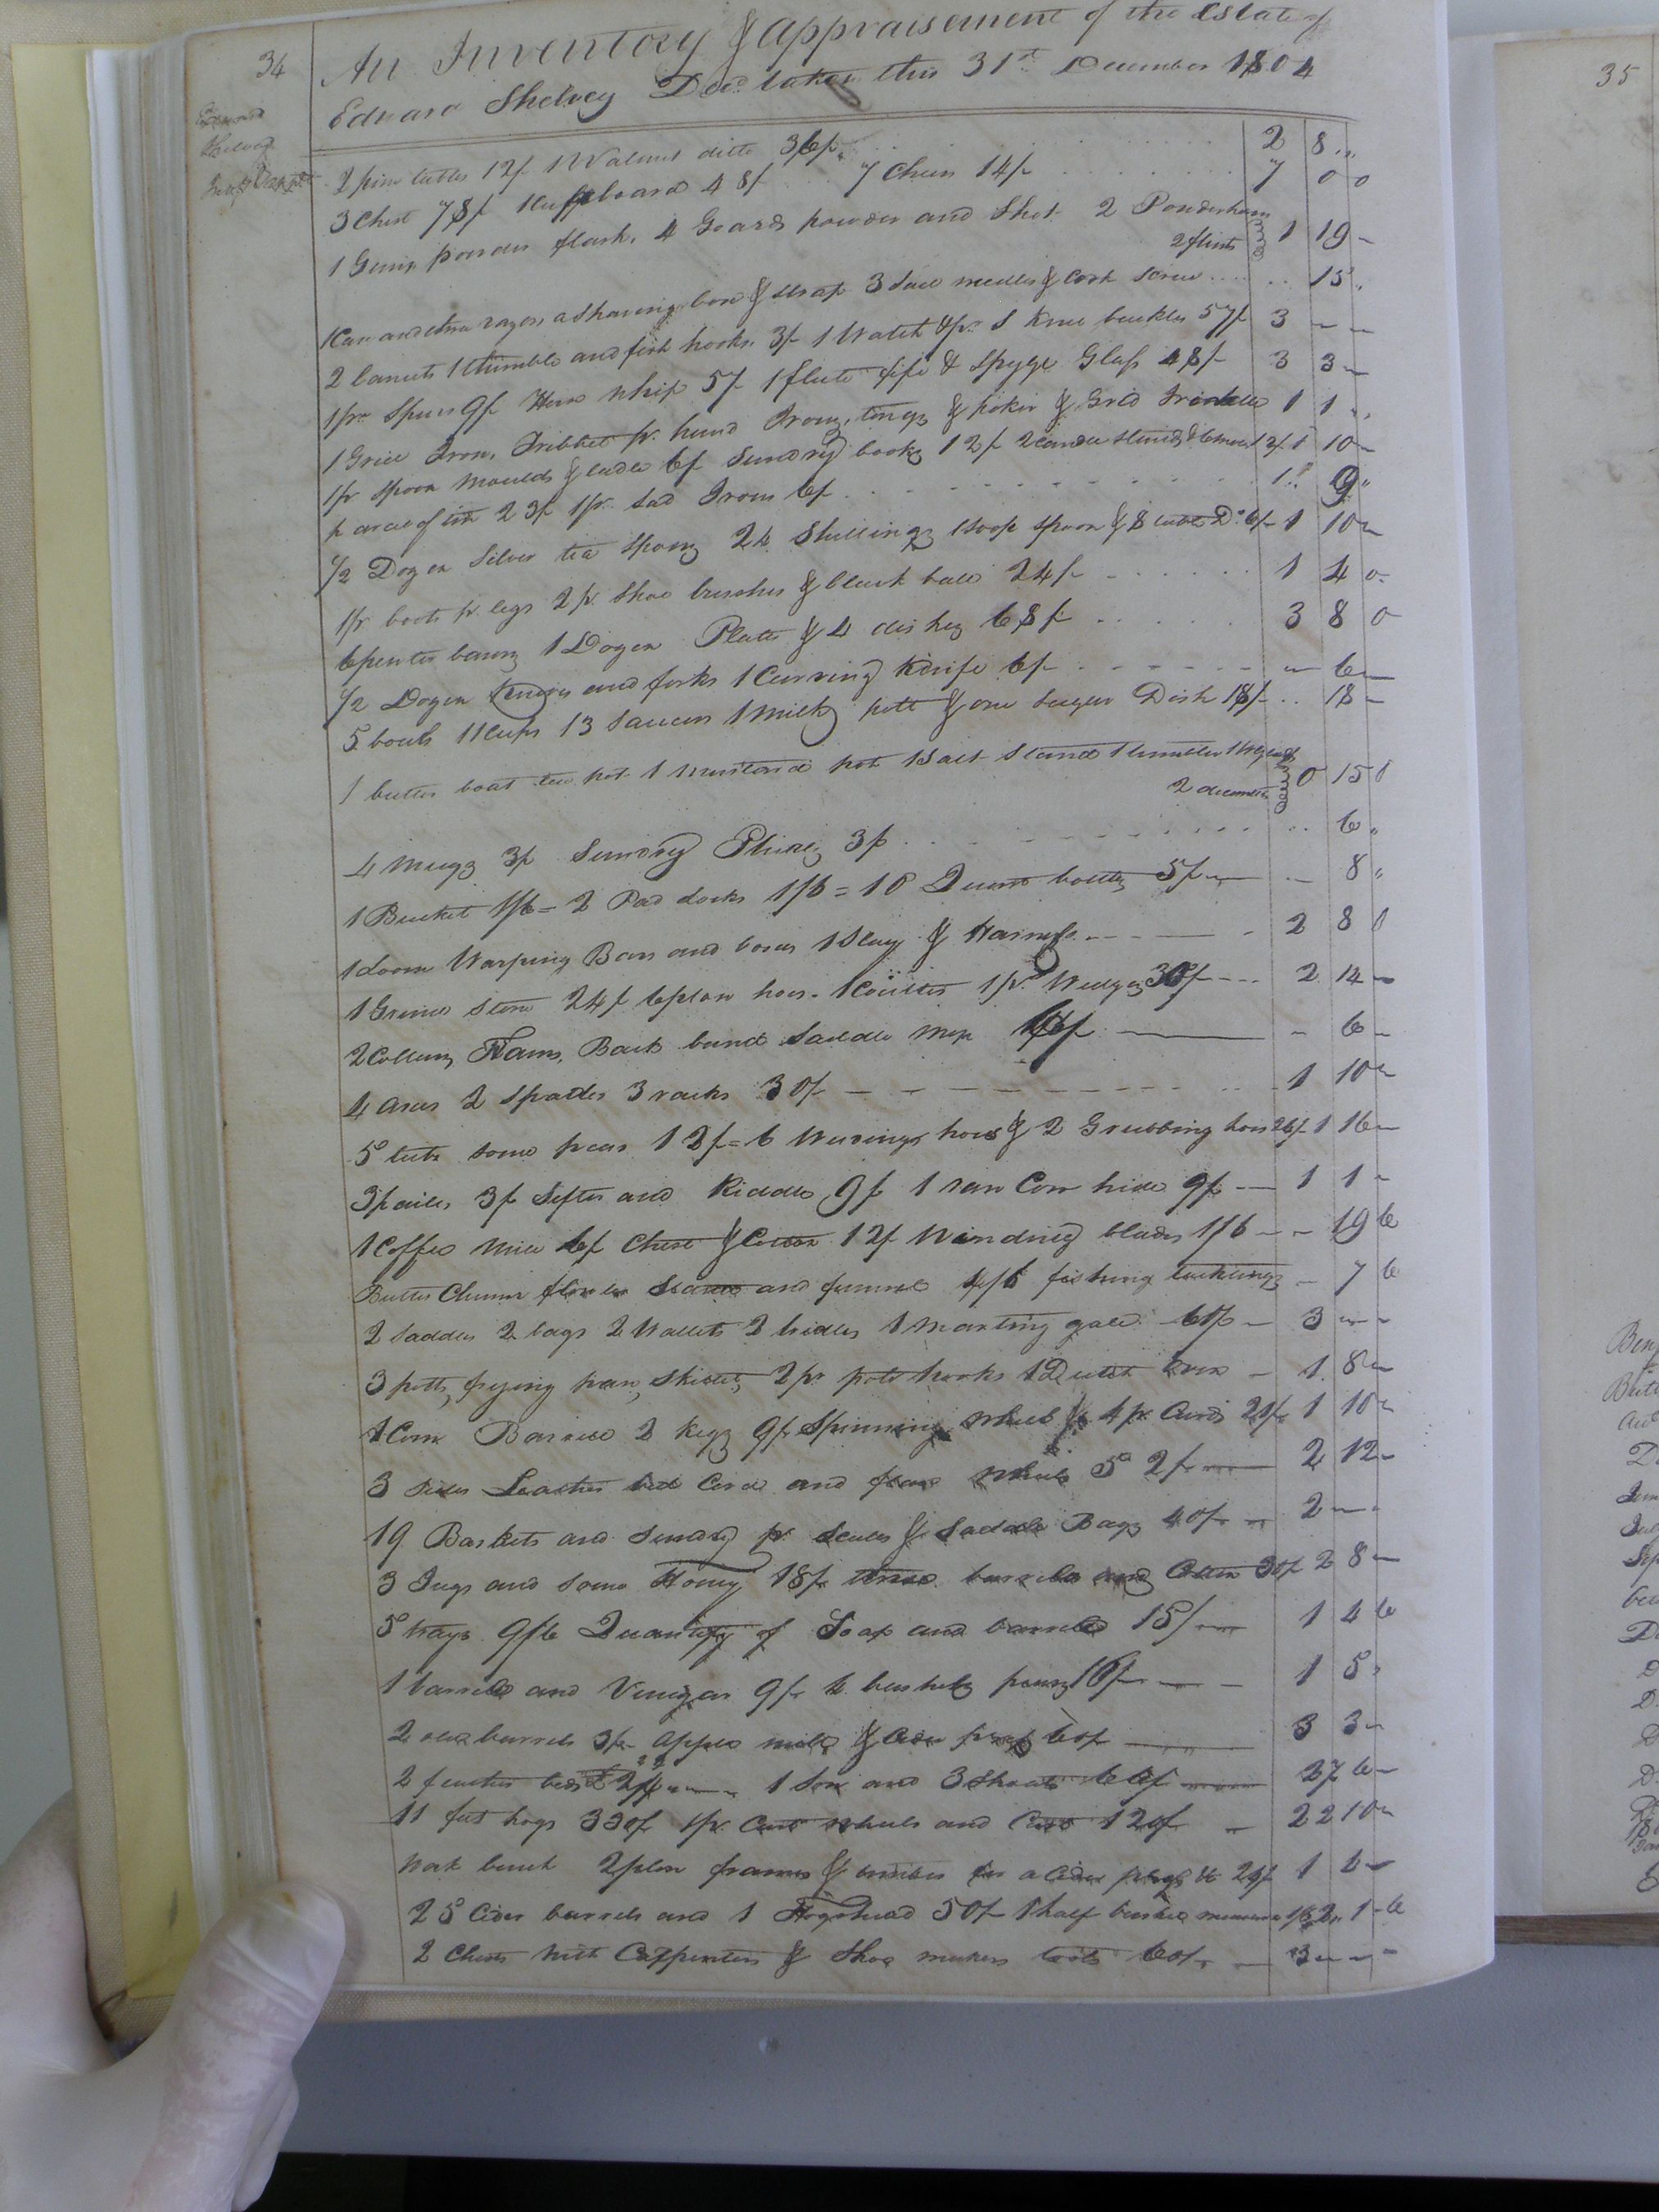 34
An Inventory & appraisement of the Estate of
Edward Shelvey Decd. taken this 31st December 1804
Edward
Shelvey
2 pine tables 12/ 1 Walnut ditto 36/. 2 8 "
3 Chest 78/ 1 Cuppboard 48/ 7 Chers 14/ 7 0 0
1 Gunn powder flask, 4 Goards powder and Shot 2 Powderhorns
2 flints 1 19 -
1 Case and two razors a shaving box & strap 3 sale needles & Cork screw .. 15 "
2 1 thimble and fish hooks. 3/ 1 Watch & pr. S Knee buckles 57/ 3 - -
1 pr. Spurs 9/ Horse whip 5/ 1 flute fife & Spyge Glass 48/ 3 3 -
1 Grid Iron, Tribbet pr. hand Irons, tongs & poker & Grid 1 1 "
1 pr. Spoon moulds & ladle 6/ Sundry books 12/ 2 Candle stands & 12/ 1 10 -
parcel of tin 23/ 1 pr. Sad Irons 6/ 1 9 "
1/2 Dozen Silver tea spoons 24 Shillings 1 soop spoon & 8 table Do. 6/ 1 10 -
1 pr. boots pr. legs 2 pr. Shoe brushes & black ball 24/ 1 4 0
6 pewter basons 1 Dozen Plates & 4 dishes 68/ 3 8 0
1/2 Dozen knives and forks 1 Carving Knife 6/ - 6 -
5 bowls 11 Cups 13 Saucers 1 milk pott & one sugar Dish 18/ .. 18 -
1 butter boat tea pot 1 mustard pot 1 Salt Stand 1 tumbler 1
2 decanters 0 15 0
4 Mugs 3/ Sundry Phials 3/ .. 6 "
1 Bucket 1/6 = 2 Pad locks 1/6 = 10 Quart bottles 5/ - 8 "
1 Loom Warping Bars and boxes 1 Slay & Harness 2 8 0
1 Grind stone 24/ 6 plow hoes. 1 Coulter 1 pr. Wedges 30/ 2 14 -
2 Collars, Hams, Back band Saddle 6/ - 6 -
4 axes 2 Spades 3 racks 30/ 1 10 -
5 tubs some peas 12/ = 6 Weeding hoes & 2 Grubbing hoes 24/ 1 16 -
3 pailes 3/ Sifter and Riddle, 9/ 1 raw Cow hide 9/ 1 1 -
1 Coffee Mill 6/ Chest & Cotton 12/ Winding blades 1/6 - 19 6
Butter Churn and funnel 4/6 fishing tackling - 7 6
2 Saddles 2 bags 2 Wallets 2 bridles 1 marting gale 60/ 3 - -
3 potts, frying pan, Skillet, 2 pr. pot hooks 1 Dutch Oven 1 8 -
1 Corn Barrell 2 Kegs 9/ Spinning wheel & 4 pr. Cards 21/ 1 10 -
3 sides Leather bed Cord and flax wheels 52/ 2 12 -
19 Baskets and Sundry pr. Scales & Saddle Bags 40/ 2 - -
3 Jugs and some Honey 18/ three barrels and Cotton 30/ 2 8 -
5 trays 9/6 Quantity of Soap and barrell 15/ 1 4 6
1 barrell and Vinegar 9/ 4 bushels peas 16/ 1 5 "
2 old barrels 3/ apple mill & Cider press 60/ 3 3 -
2 feather beds 1 Sow and 3 Shoats 27 6 -
11 fat hogs 330/ 1 pr. Cart wheels and Cart 120/ 22 10 -
Work bench 2 plow frames & for a Cider 1 -
25 Cider barrels and 1 Hogshead 50/ 1 half bushel measure 1/6 2 " 1 - 6
2 Chests with Carpenters & Shoe makers tools 60/ 3 - -
35